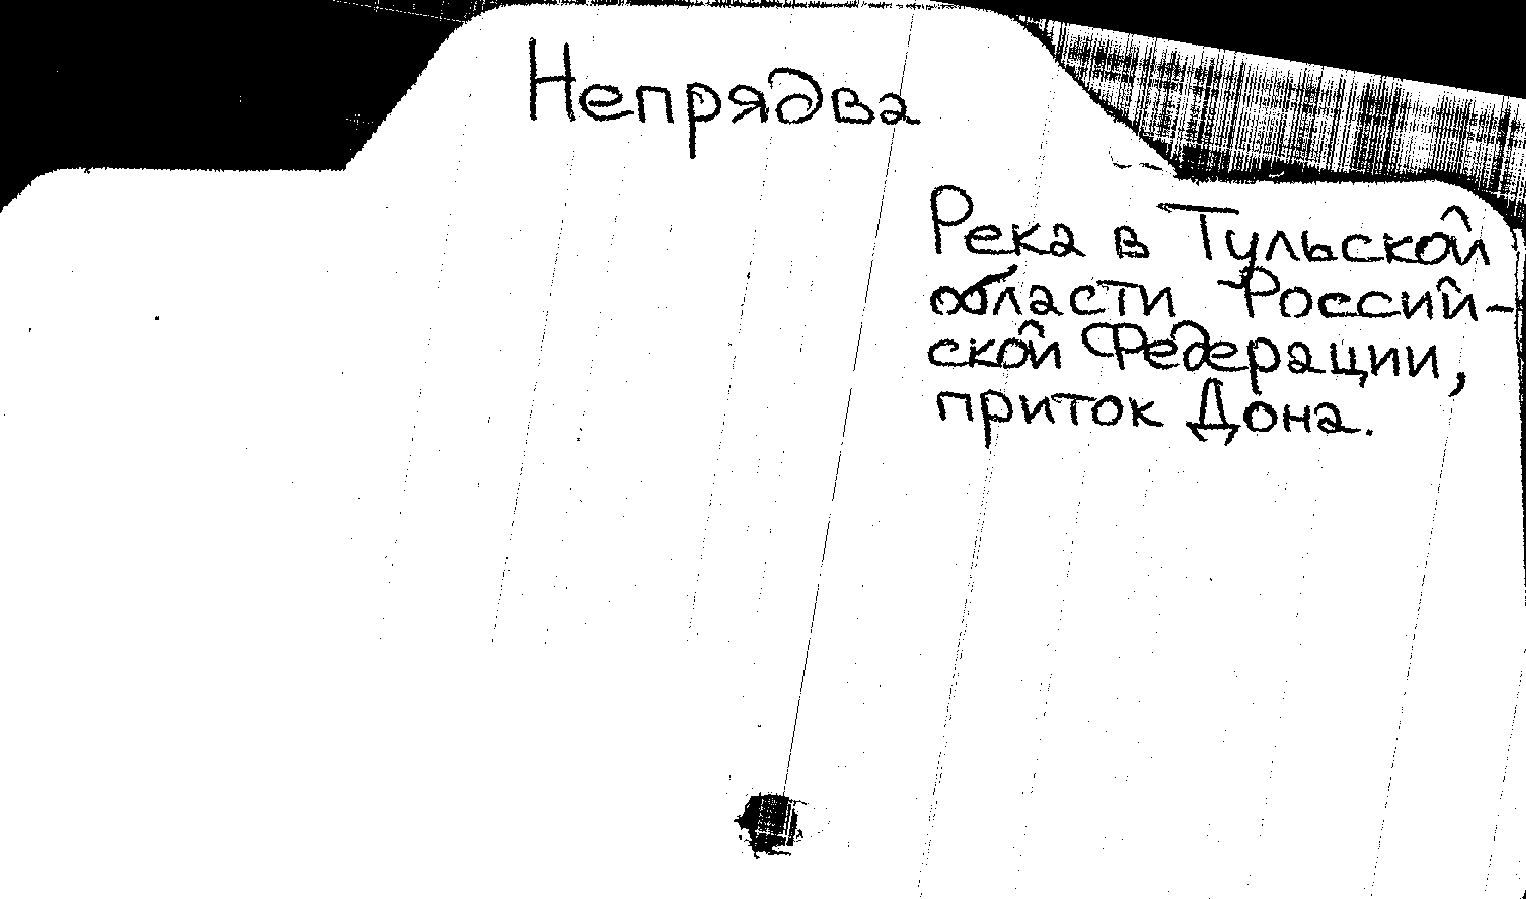 Непрядва
Река в Тульской
области Россий-
ской Федерации,
приток Дона.